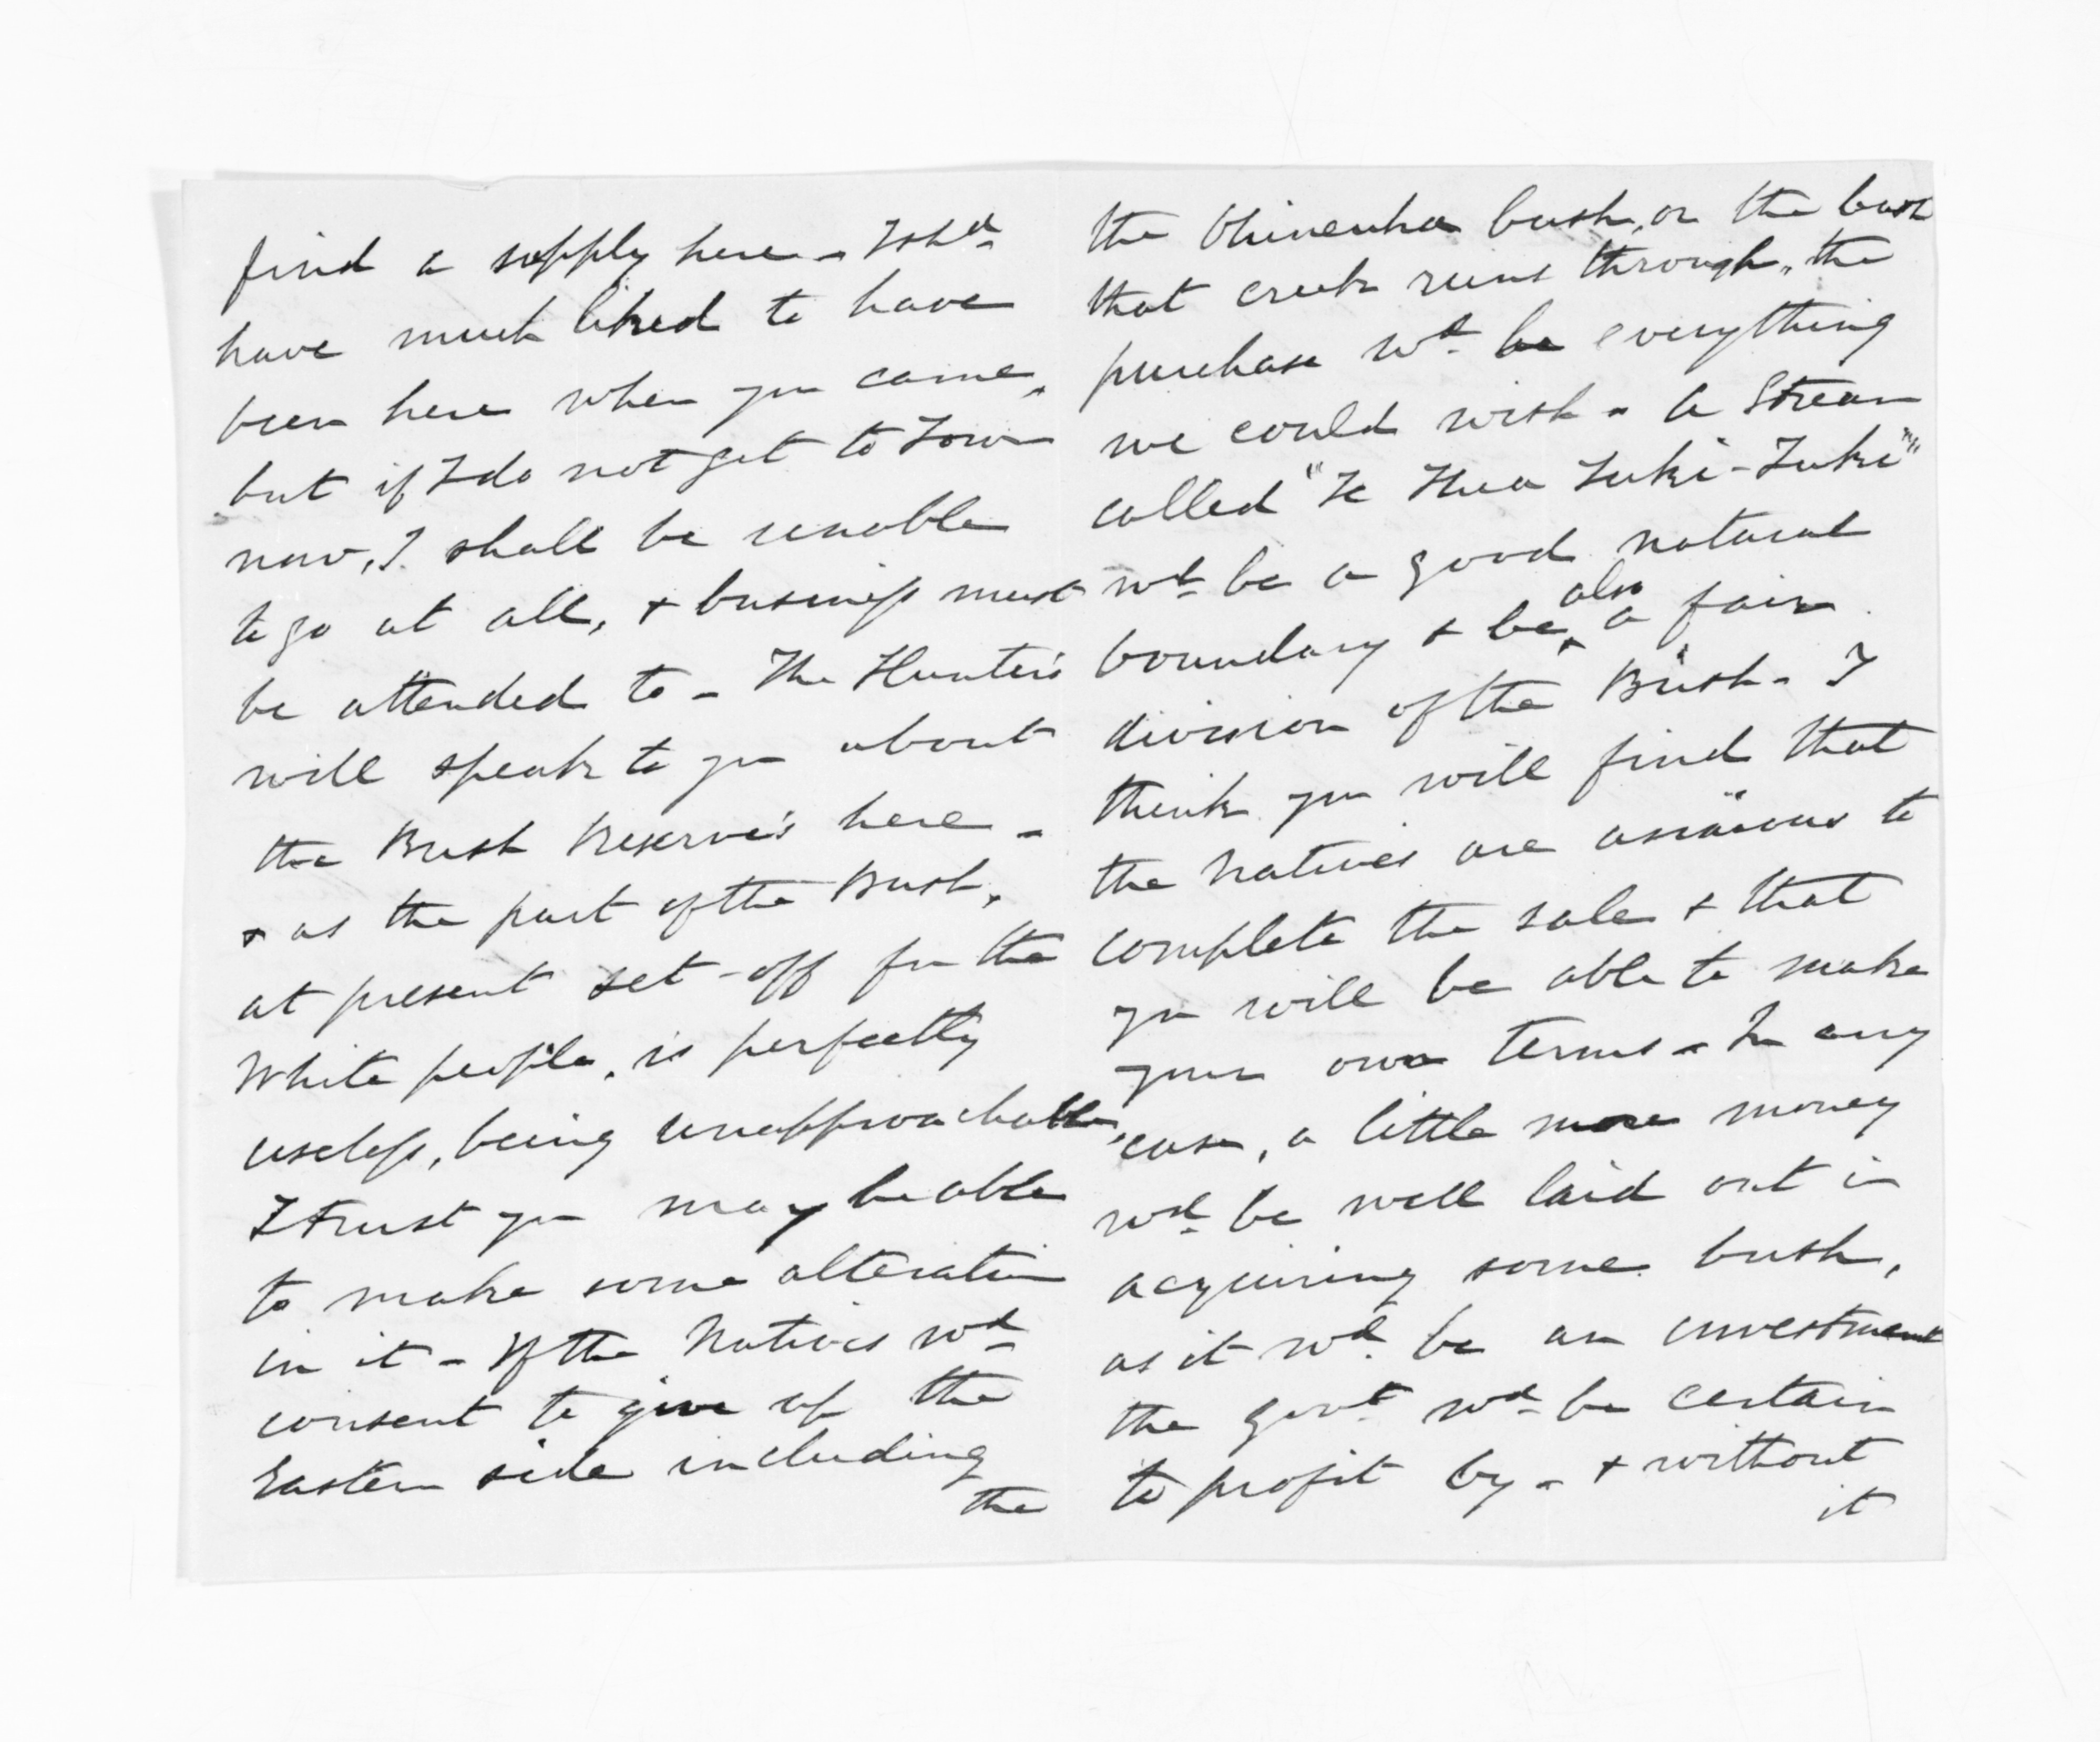 find a supply here - I shd
have much liked to have
been here when you came,
but if I do not get to Town
now, I shall be unable
to go at all, & business must
be attended to - The Hunter's
will speak to you about
the Bush Reserves here -
& as the part of the Bush,
at present set-off for the
White people, is perfectly
useless, being unapproachable,
I trust you may be able
to make some alteration
in it - If the Natives wd
consent to give up the
Eastern side including
the
the bush, or the bush
that creek runs through, the
purchase wd be everything
we could wish - A Stream
called "Te Hua Tuki-Tuki"
wd be a good natural
boundary & be also a fair
division of the Bush - I
think you will find that
the Natives are anxious to
complete the sale & that
you will be able to make
your own terms - In any
case, a little more money
wd be well laid out in
acquiring some bush,
as it wd be an investment
the govt wd be certain
to profit by - & without
it